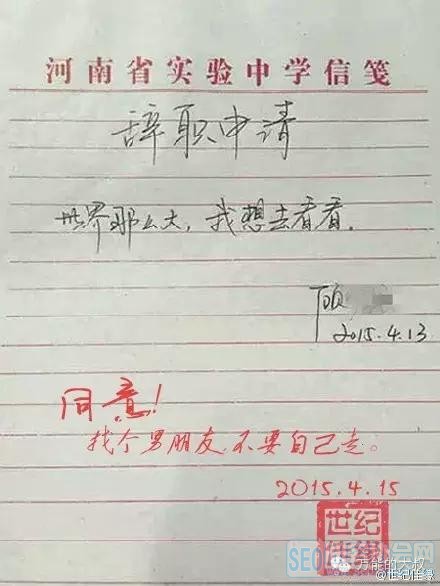 河南省实验中学信笺
辞职申请
世界那么大，我想去看看.
顾
2015.4.13
同意！
找个男朋友，不要自己走。
2015.4.15
世纪
佳缘
万能的大叔
@世纪佳缘